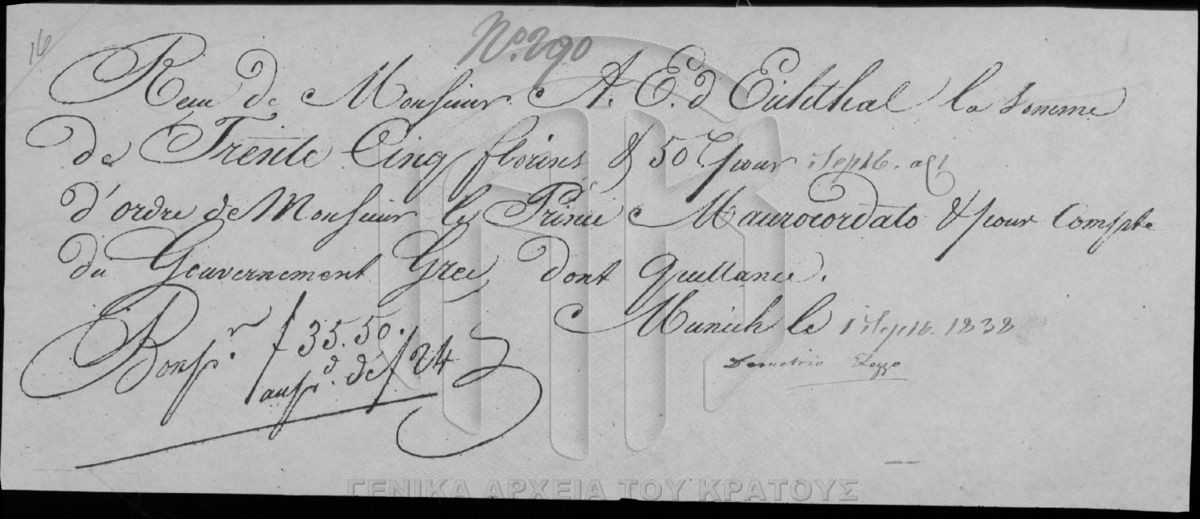 16
No. 290
Recu de Monsieur A. E. d'Eichthal la Somme
de Trente Cinq florins & 50 C pour Septb. a
d'ordre de Monsieur le Prince Maurocordato & pour Compte
du Gouvernement Grec, dont Quittance.
Munich le 1 Septb. 1838
Bon pr. f 35.50.
au pd. de f 24
Demetrio
ΓΕΝΙΚΑ ΑΡΧΕΙΑ ΤΟΥ ΚΡΑΤΟΥΣ